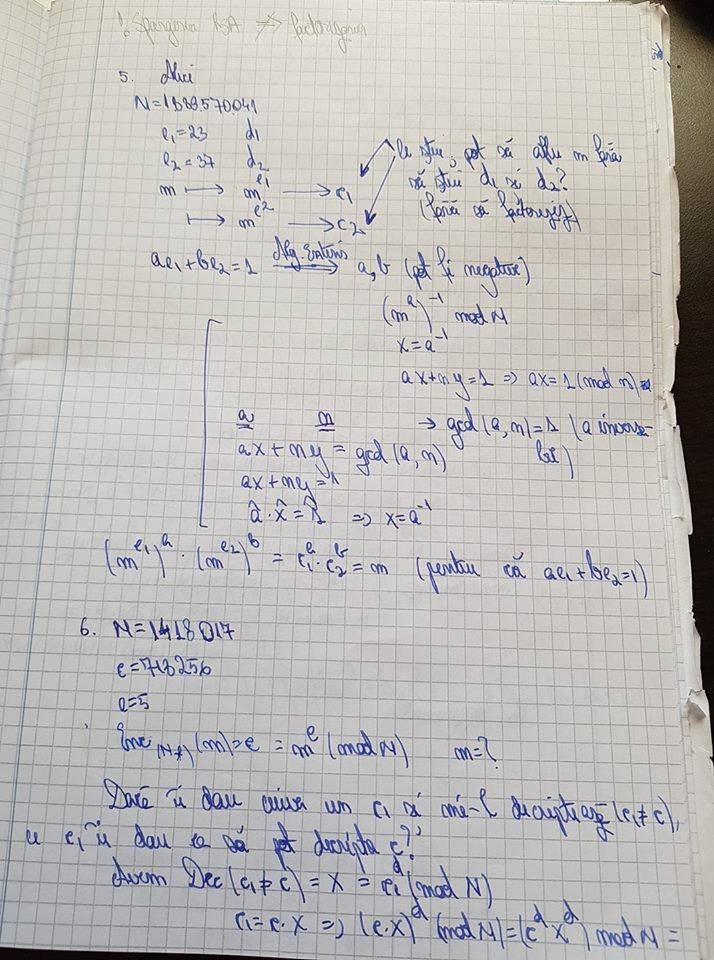 ! Spargerea RSA ⇏ factorizarea
5. Alice
N=1889570041
e₁=23 d₁
e₂=37 d₂
m ⟼ m^e₁ ⟶ c₁
⟼ m^e₂ ⟶ c₂
Le știu, pot să aflu m fără
să știu d₁ și d₂?
(fără să factorizez)
ae₁+be₂=1 Alg. Extins ⟹ a,b (pot fi negative)
(m^a)^-1 mod N
x=a^-1
ax+ny=1 ⇒ ax=1(mod n)
a n → gcd(a,n)=1 (a inversa-
ax+ny=gcd(a,n) bil)
ax+ny=1
â·x̂=1̂ ⇒ x=a^-1
(m^e₁)^a · (m^e₂)^b = c₁^a·c₂^b=m (pentru că ae₁+be₂=1)
6. N=1418017
c=718256
e=5
Enc(N,e)(m)=c =m^e(mod N) m=?
Dacă îi dau cuiva un c₁ și mi-l decriptează (c₁≠c),
ce c₁ îi dau ca să pot decripta c?
Avem Dec(c₁≠c)=x=c₁^d(mod N)
c₁=c·x ⇒ (c·x)^d (mod N)=(c^d x^d) mod N=